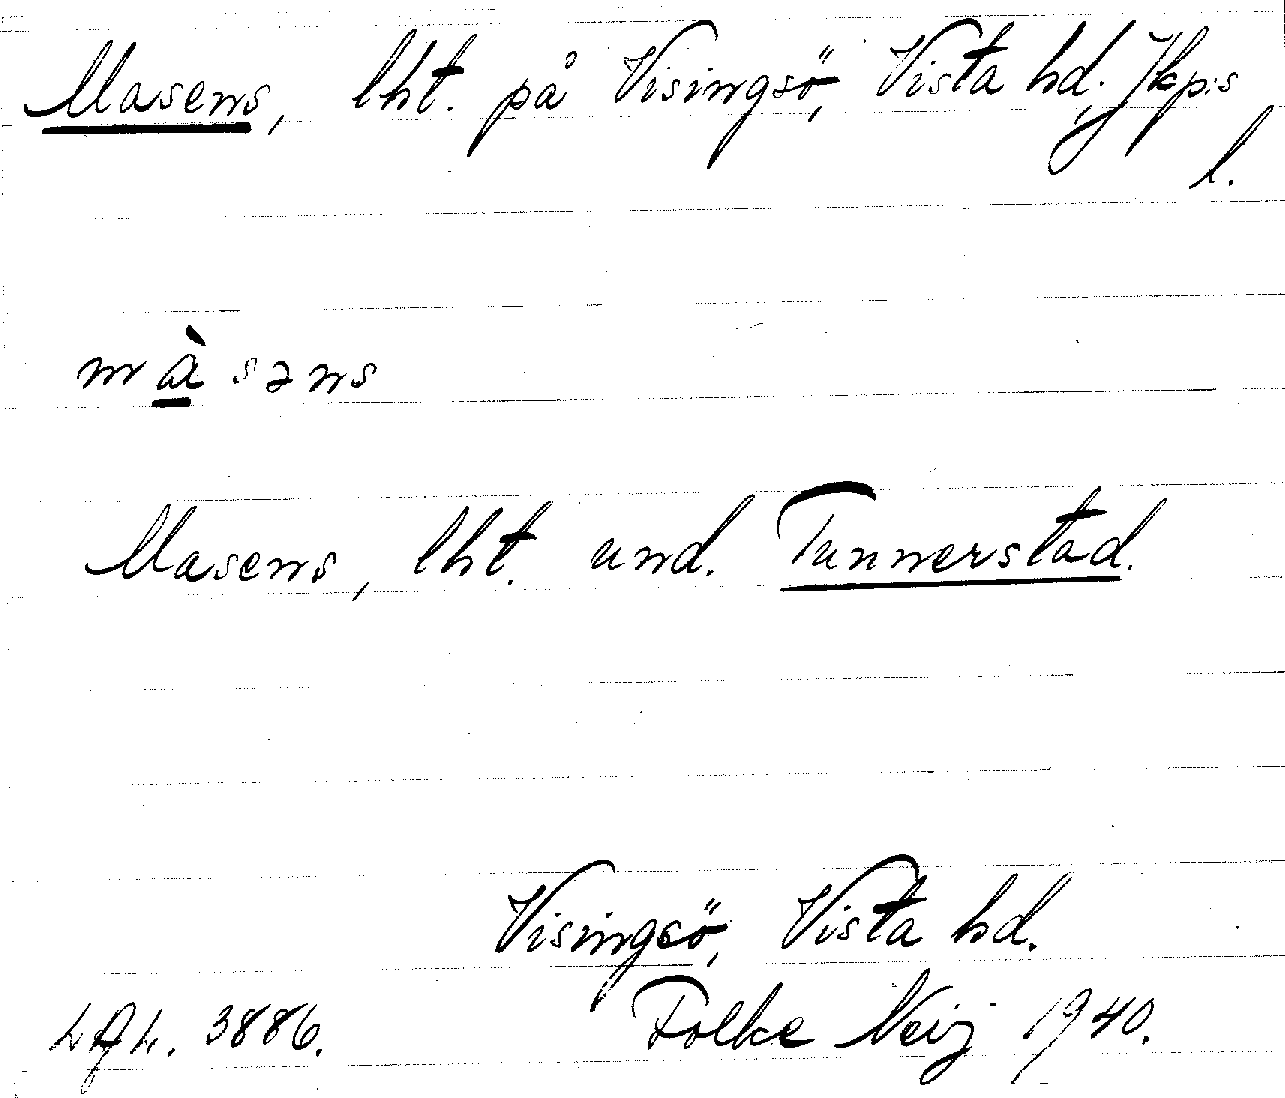 Masens, lht. på Visingsö, Vista hd, Jkp:s
l.
mà̱səns
Masens, lht. und. Tunnerstad.
Visingsö, Vista hd.
3886. Folke Neij 1940.